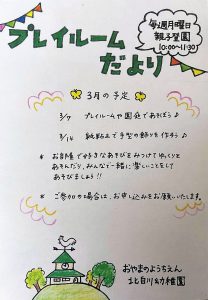 毎週月曜日
親子登園
10:00〜11:30
プレイルーム
だより
3月の予定
3/7 プレイルームや園庭であそぼう♪
3/14 紙粘土で手型の飾りを作ろう♪
* お部屋で好きなあそびをみつけてゆっくりと
あそんだり、みんなで一緒に楽しいことをして
あそびましょう!!
* ご参加の場合は、お申し込みをお願いいたします。
おやまのようちえん
北白川幼稚園